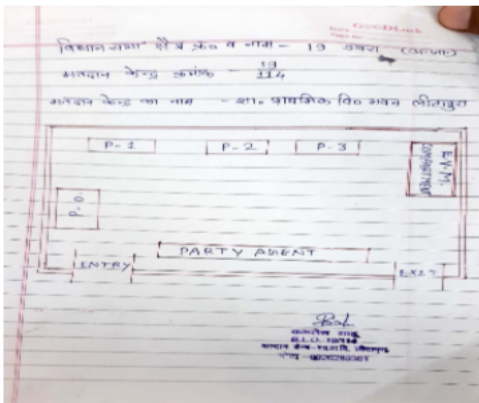 GOODLUCK
विधान सभा क्षेत्र क्र० व नाम - 19 डबरा (अ.जा.)
मतदान केन्द्र क्रमांक - 19/114
मतदान केन्द्र का नाम - शा० प्राथमिक वि० भवन
P-1 P-2 P-3 E.V.M. COMPARTMENT
P.O.
PARTY AGENT
ENTRY EXIT
B.L.O.